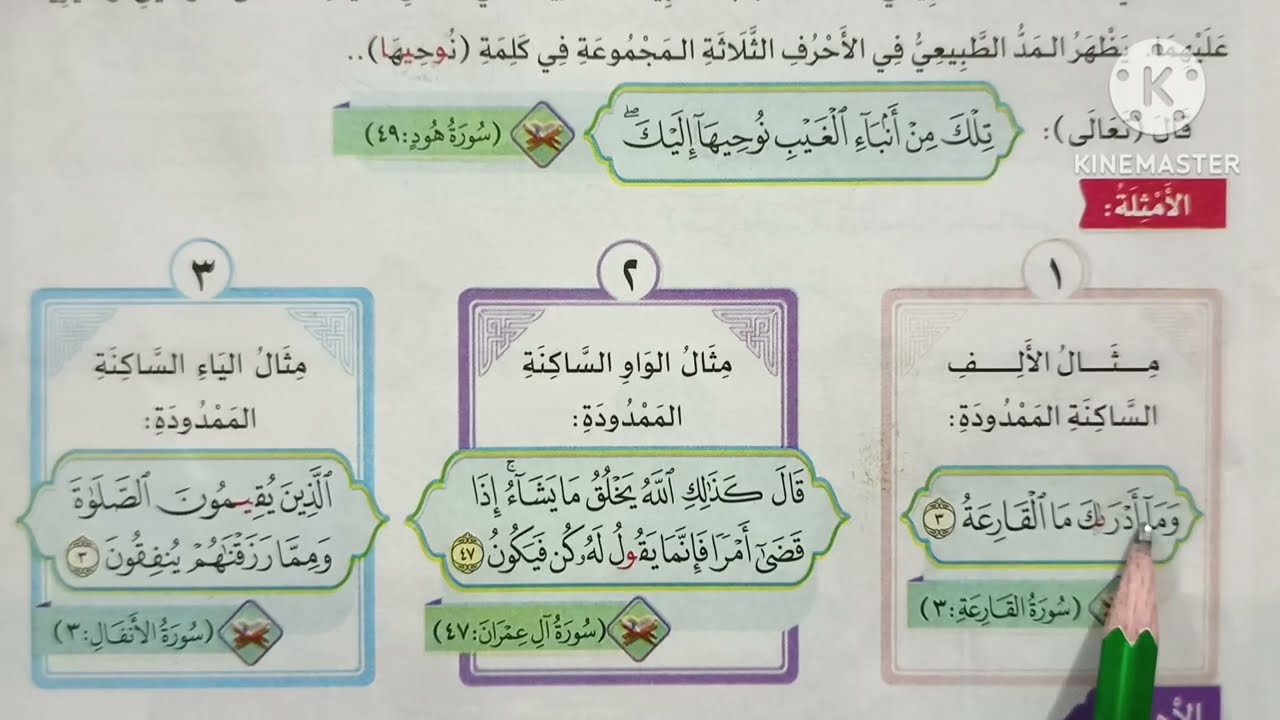 عَلَيْهِمَا. يَظْهَرُ الـمَدُّ الطَّبِيعِيُّ فِي الأَحْرُفِ الثَّلَاثَةِ الـمَجْمُوعَةِ فِي كَلِمَةِ (نُوحِيهَا)..
قَالَ (تَعَالَى):
تِلْكَ مِنْ أَنۢبَآءِ ٱلْغَيْبِ نُوحِيهَآ إِلَيْكَ ۖ
(سُورَةُ هُودٍ: ٤٩)
K
KINEMASTER
الأَمْثِلَةُ:
١
مِـثَـالُ الأَلِـفِ
السَّاكِنَةِ المَمْدُودَةِ:
وَمَآ أَدْرَىٰكَ مَا ٱلْقَارِعَةُ ٣
(سُورَةُ القَارِعَةِ: ٣)
٢
مِثَالُ الوَاوِ السَّاكِنَةِ
المَمْدُودَةِ:
قَالَ كَذَٰلِكِ ٱللَّهُ يَخْلُقُ مَا يَشَآءُ ۚ إِذَا
قَضَىٰٓ أَمْرًا فَإِنَّمَا يَقُولُ لَهُۥ كُن فَيَكُونُ ٤٧
(سُورَةُ آلِ عِمْرَانَ: ٤٧)
٣
مِثَالُ اليَاءِ السَّاكِنَةِ
المَمْدُودَةِ:
ٱلَّذِينَ يُقِيمُونَ ٱلصَّلَوٰةَ
وَمِمَّا رَزَقْنَٰهُمْ يُنفِقُونَ ٣
(سُورَةُ الأَنْفَالِ: ٣)